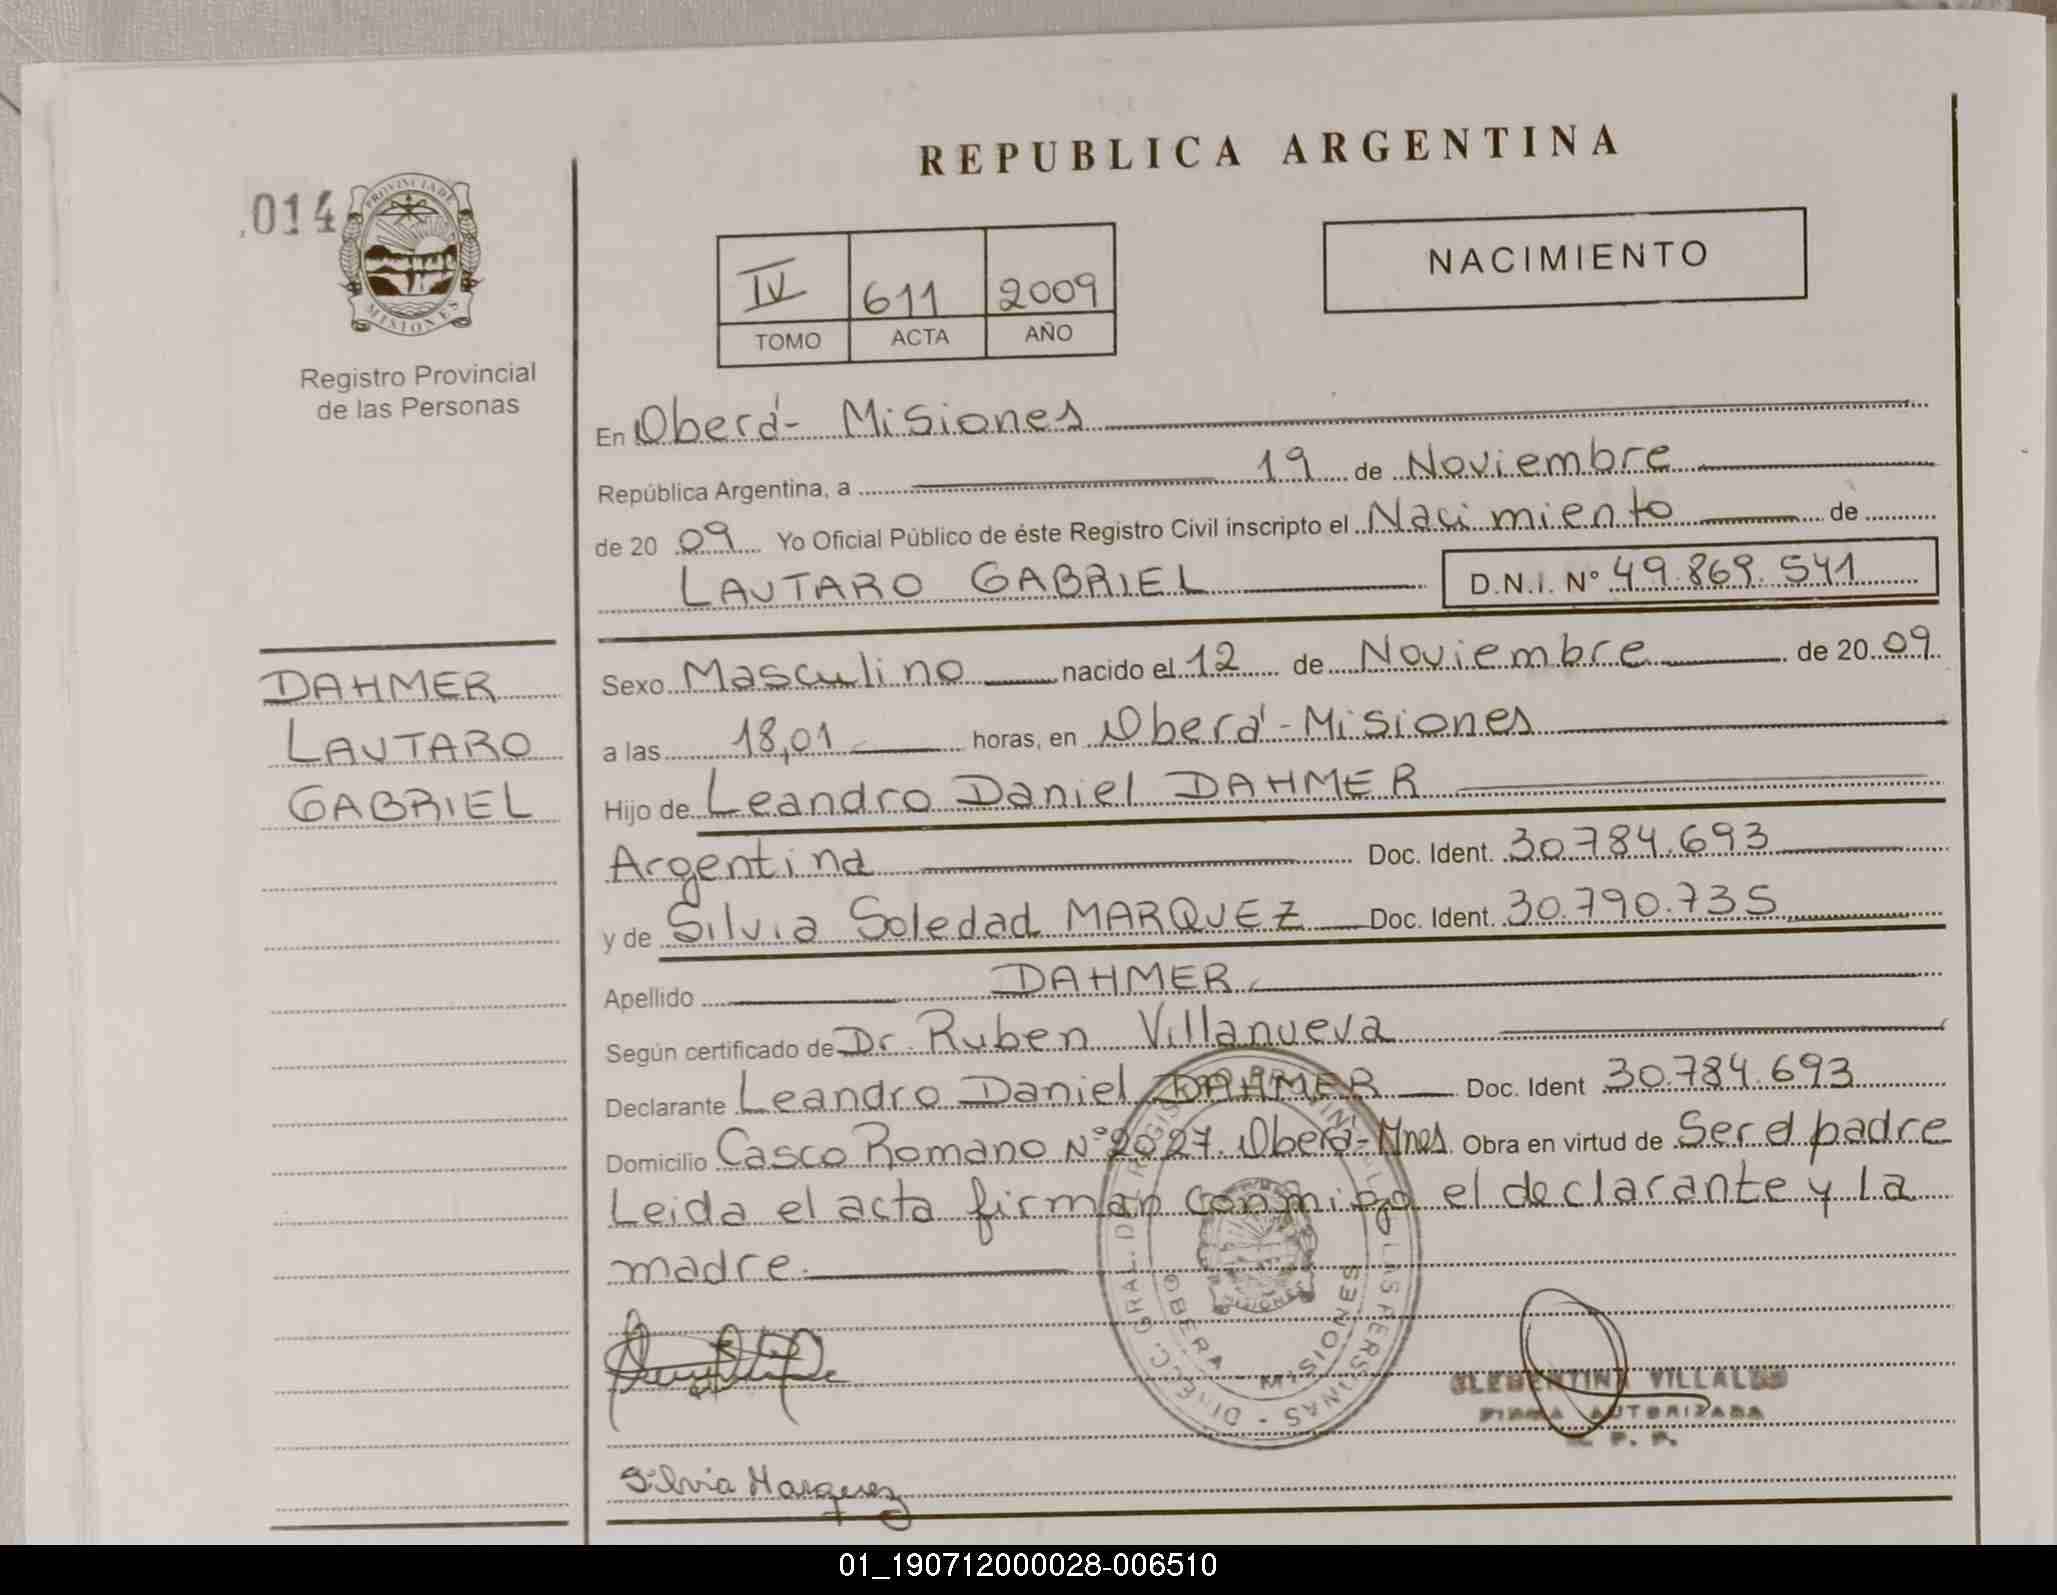 REPUBLICA ARGENTINA
014
PROVINCIA DE
MISIONES
Registro Provincial
de las Personas
IV 611 2009
TOMO ACTA AÑO
NACIMIENTO
En Oberá - Misiones
República Argentina, a 19 de Noviembre
de 20 09 Yo Oficial Público de éste Registro Civil inscripto el Nacimiento de
LAUTARO GABRIEL D.N.I. Nº 49.869.541
DAHMER
LAUTARO
GABRIEL
Sexo Masculino nacido el 12 de Noviembre de 20 09
a las 18,01 horas, en Oberá - Misiones
Hijo de Leandro Daniel DAHMER
Argentina Doc. Ident. 30.784.693
y de Silvia Soledad MARQUEZ Doc. Ident. 30.790.735
Apellido DAHMER
Según certificado de Dr. Ruben Villanueva
Declarante Leandro Daniel DAHMER Doc. Ident 30.784.693
Domicilio Casco Romano Nº 2027. Oberá - Mnes. Obra en virtud de Ser el padre
Leida el acta firman conmigo el declarante y la
madre.
OBERA - MISIONES
VILLALBA
FIRMA AUTORIZADA
Silvia Marquez
01_190712000028-006510